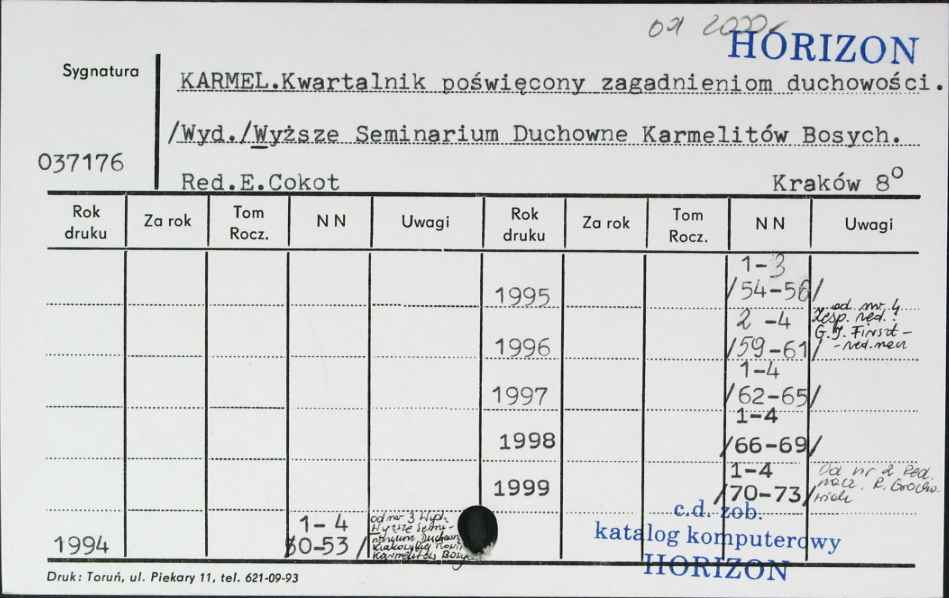 od 2000r
HORIZON
Sygnatura
KARMEL.Kwartalnik poświęcony zagadnieniom duchowości.
/Wyd./Wyższe Seminarium Duchowne Karmelitów Bosych.
037176
Red.E.Cokot Kraków 8°
Rok druku Za rok Tom Rocz. N N Uwagi Rok druku Za rok Tom Rocz. N N Uwagi
1-3
1995 /54-56/
od nr 4
2 -4 Zesp. red.:
1996 /59-61/ G.J. Firszt -
- red. nacz
1-4
1997 /62-65/
1-4
1998 /66-69/
1-4 Od nr 2 Red.
1999 /70-73/ nacz. R.
1994 1-4 50-53/ od nr 3 Wyd.:
Wyższe Semi-
Duchowne
Karmelitów Bosych
c.d. zob.
katalog komputerowy
HORIZON
Druk: Toruń, ul. Piekary 11, tel. 621-09-93